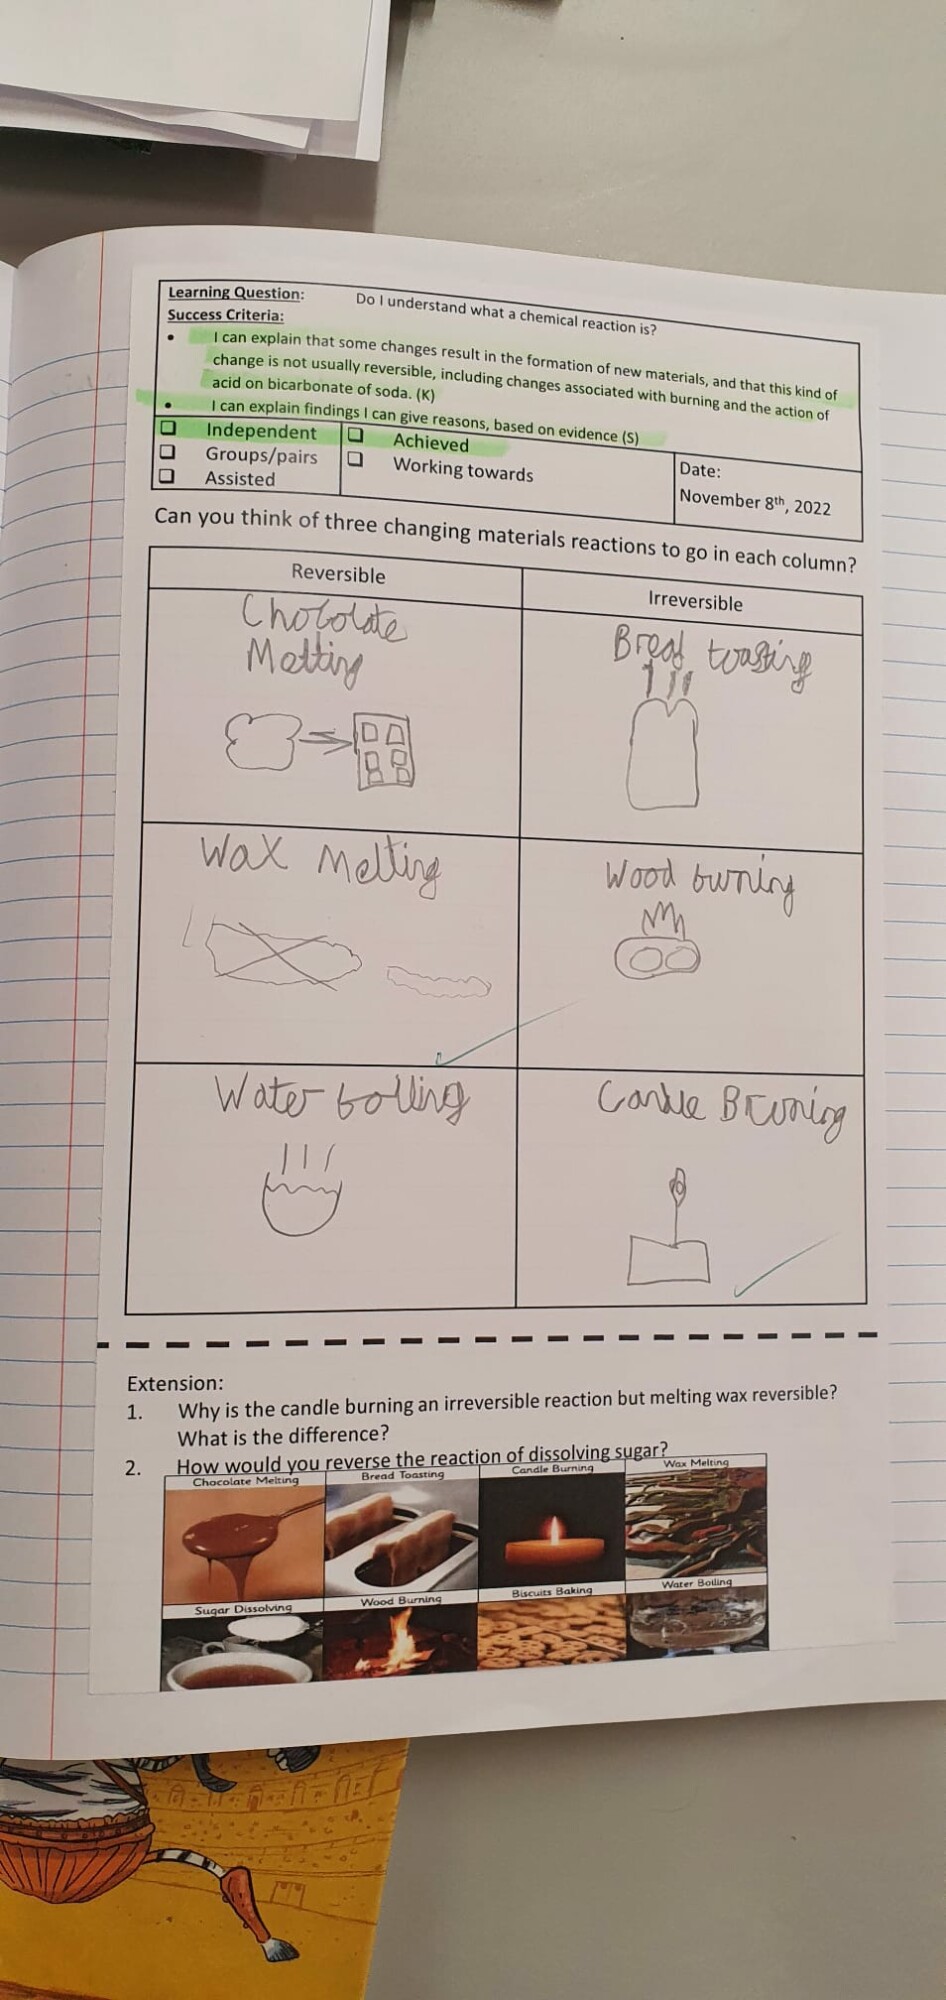 Learning Question: Do I understand what a chemical reaction is?
Success Criteria:
• I can explain that some changes result in the formation of new materials, and that this kind of
change is not usually reversible, including changes associated with burning and the action of
acid on bicarbonate of soda. (K)
• I can explain findings I can give reasons, based on evidence (S)
❑ Independent
❑ Groups/pairs
❑ Assisted
❑ Achieved
❑ Working towards
Date:
November 8th, 2022
Can you think of three changing materials reactions to go in each column?
Reversible
Irreversible
Chocolate
Melting
Bread toasting
Wax Melting
Wood burning
Water boiling
Candle Bruning
Extension:
1. Why is the candle burning an irreversible reaction but melting wax reversible?
What is the difference?
2. How would you reverse the reaction of dissolving sugar?
Chocolate Melting
Bread Toasting
Candle Burning
Wax Melting
Sugar Dissolving
Wood Burning
Biscuits Baking
Water Boiling